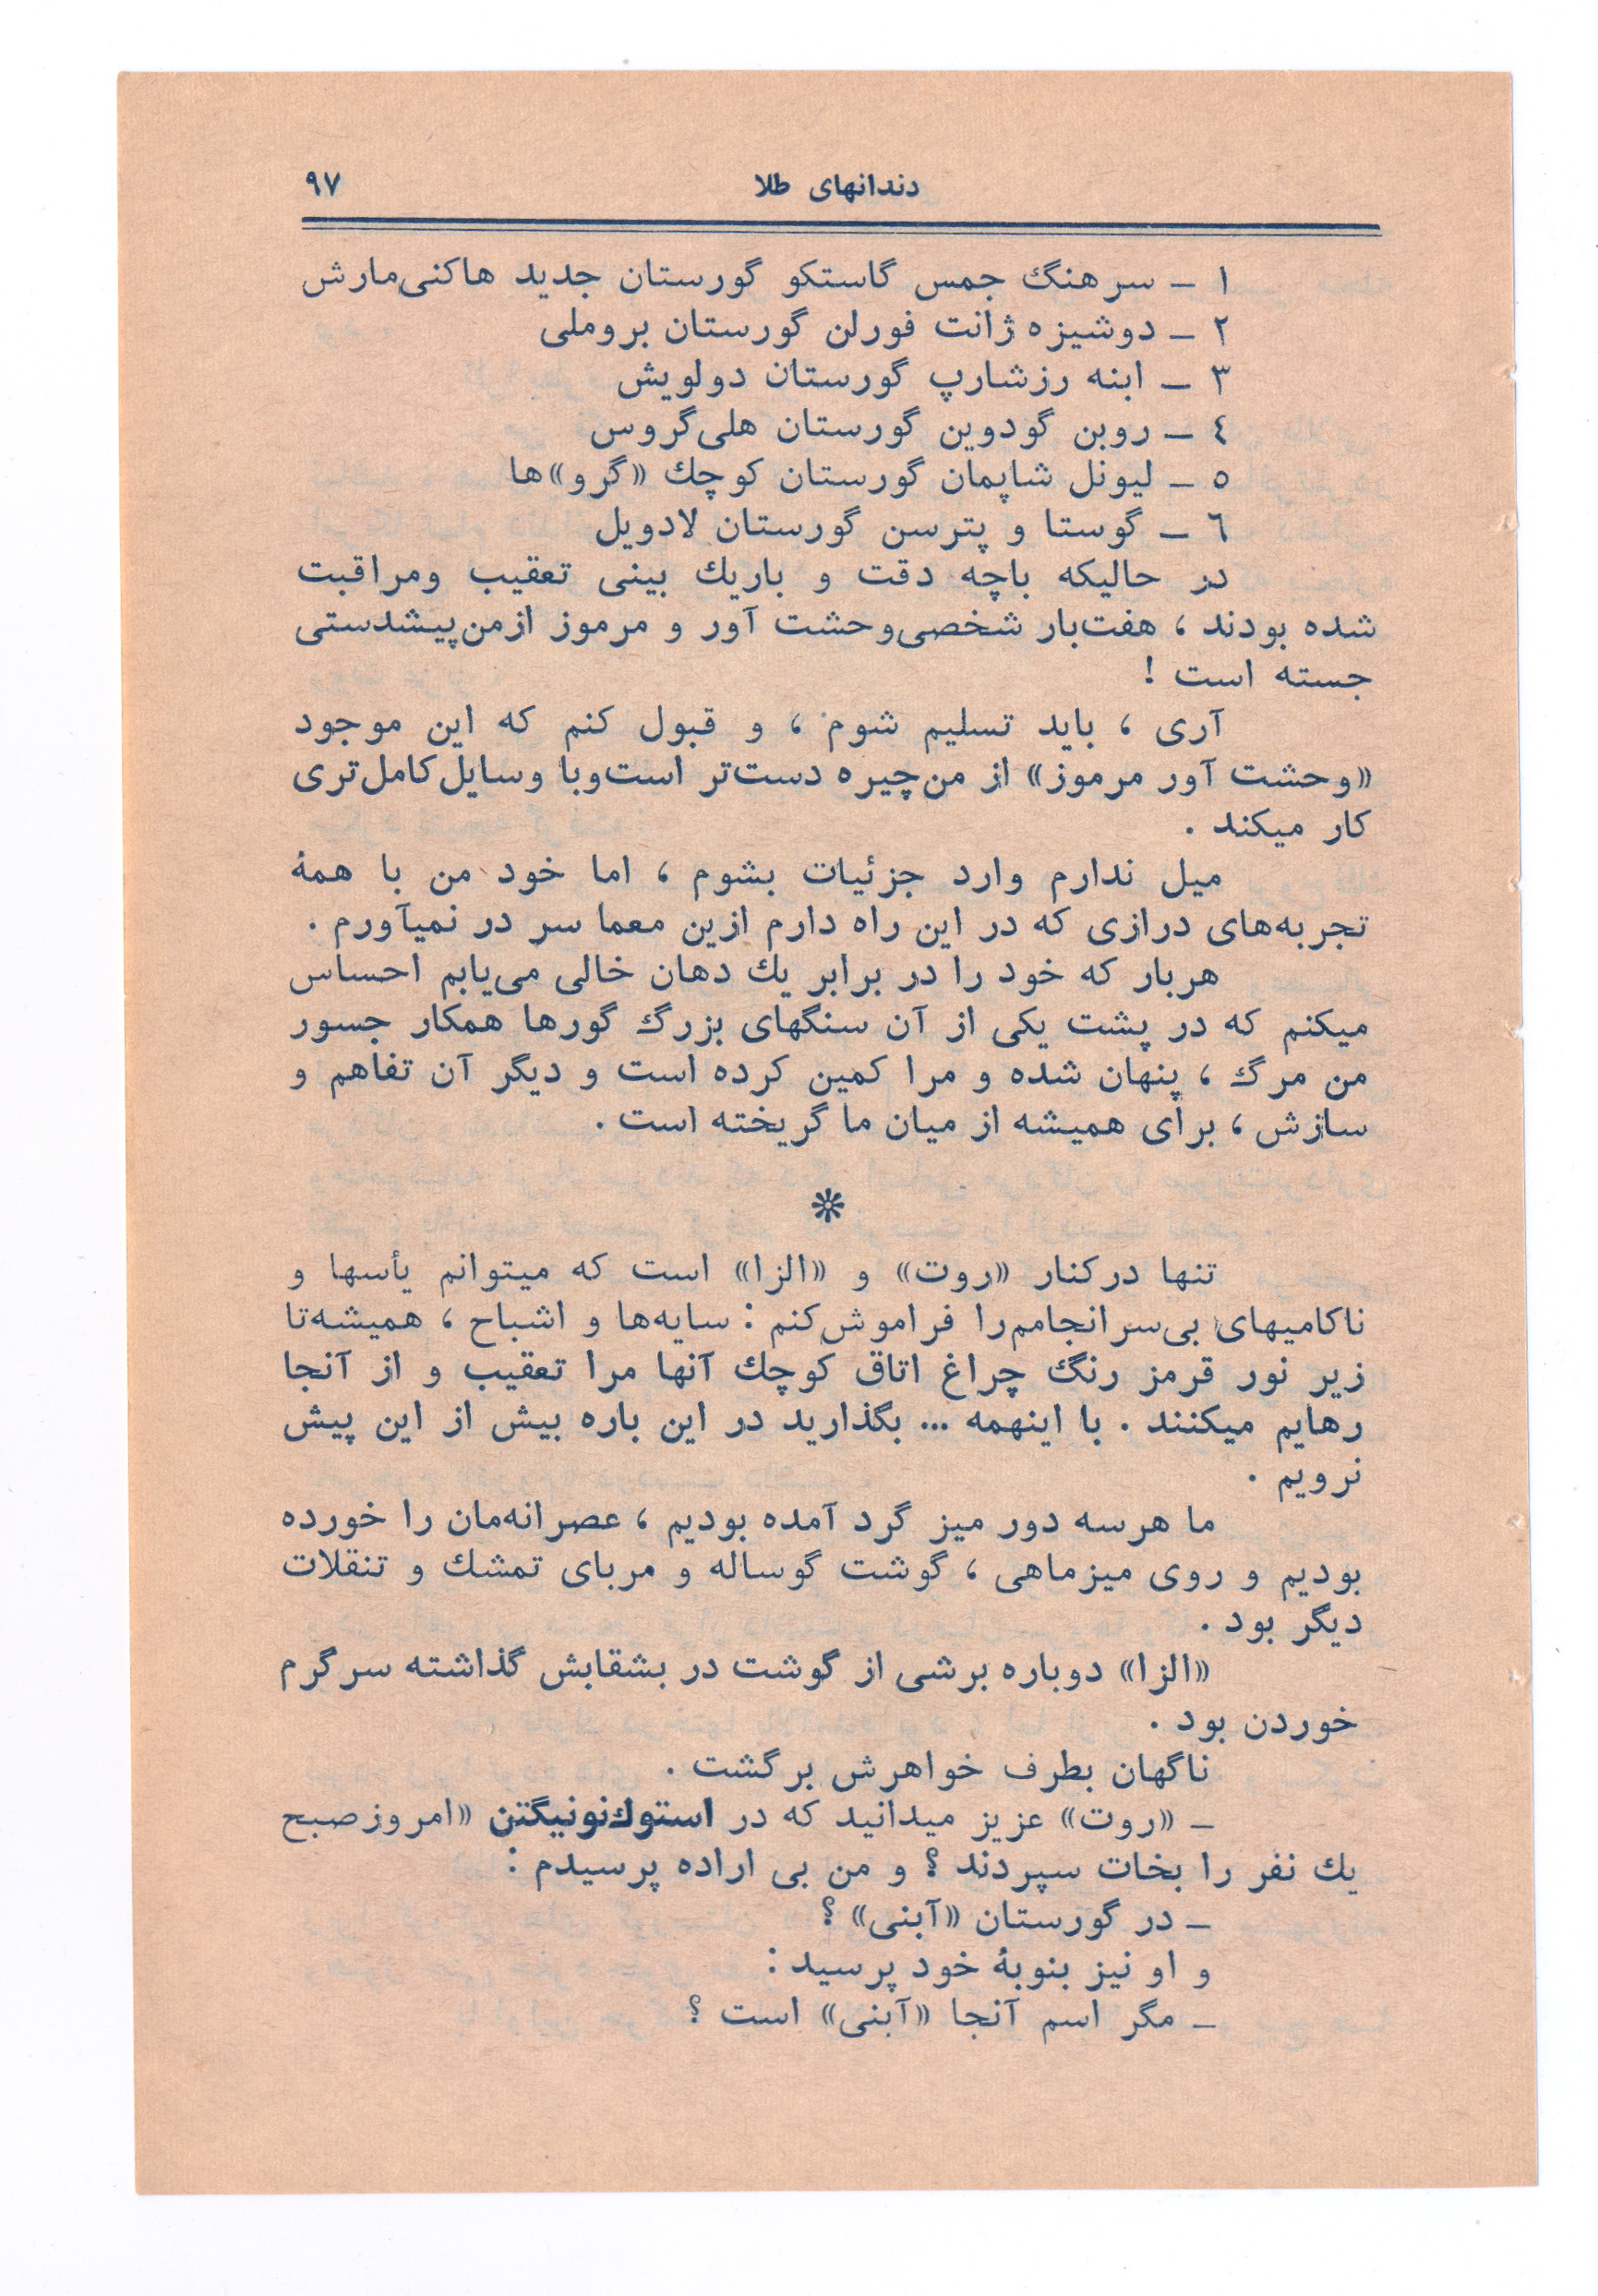 دندانهای طلا ۹۷
۱ ـ سرهنگ جمس گاستکو گورستان جدید هاکنی‌مارش
۲ ـ دوشیزه ژانت فورلن گورستان بروملی
۳ ـ ابنه رزشارپ گورستان دولویش
٤ ـ روبن گودوین گورستان هلی‌گروس
٥ ـ لیونل شاپمان گورستان کوچك «گرو»ها
٦ ـ گوستا و پترسن گورستان لادویل
در حالیکه باچه دقت و باریك بینی تعقیب ومراقبت
شده بودند ، هفت‌بار شخصی‌وحشت آور و مرموز ازمن‌پیشدستی
جسته است !
آری ، باید تسلیم شوم ، و قبول کنم که این موجود
«وحشت آور مرموز» از من‌چیره دست‌تر است‌وبا وسایل‌کامل‌تری
کار میکند .
میل ندارم وارد جزئیات بشوم ، اما خود من با همهٔ
تجربه‌های درازی که در این راه دارم ازین معما سر در نمیآورم .
هربار که خود را در برابر یك دهان خالی می‌یابم احساس
میکنم که در پشت یکی از آن سنگهای بزرگ گورها همکار جسور
من مرگ ، پنهان شده و مرا کمین کرده است و دیگر آن تفاهم و
سازش ، برای همیشه از میان ما گریخته است .
❊
تنها درکنار «روت» و «الزا» است که میتوانم یأسها و
ناکامیهای بی‌سرانجامم‌را فراموش‌کنم : سایه‌ها و اشباح ، همیشه‌تا
زیر نور قرمز رنگ چراغ اتاق کوچك آنها مرا تعقیب و از آنجا
رهایم میکنند . با اینهمه ... بگذارید در این باره بیش از این پیش
نرویم .
ما هرسه دور میز گرد آمده بودیم ، عصرانه‌مان را خورده
بودیم و روی میزماهی ، گوشت گوساله و مربای تمشك و تنقلات
دیگر بود .
«الزا» دوباره برشی از گوشت در بشقابش گذاشته سرگرم
خوردن بود .
ناگهان بطرف خواهرش برگشت .
ـ «روت» عزیز میدانید که در استوك‌نونیگتن «امروزصبح
یك نفر را بخات سپردند ؟ و من بی اراده پرسیدم :
ـ در گورستان «آبنی» ؟
و او نیز بنوبهٔ خود پرسید :
ـ مگر اسم آنجا «آبنی» است ؟